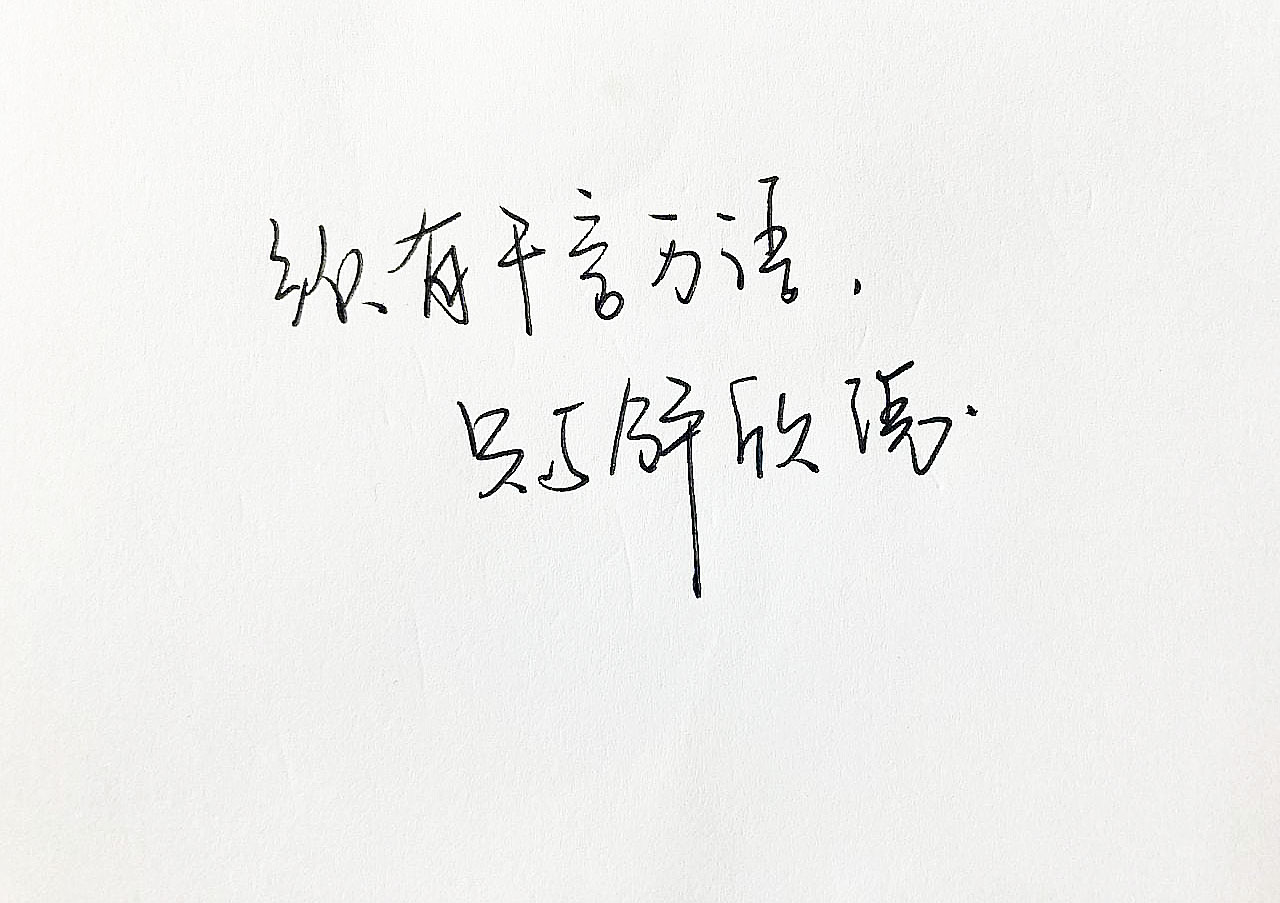 纵有千言万语,
只与解欣语.